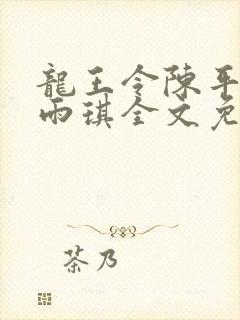 龍王令陳平
雨琪全文免
茶乃